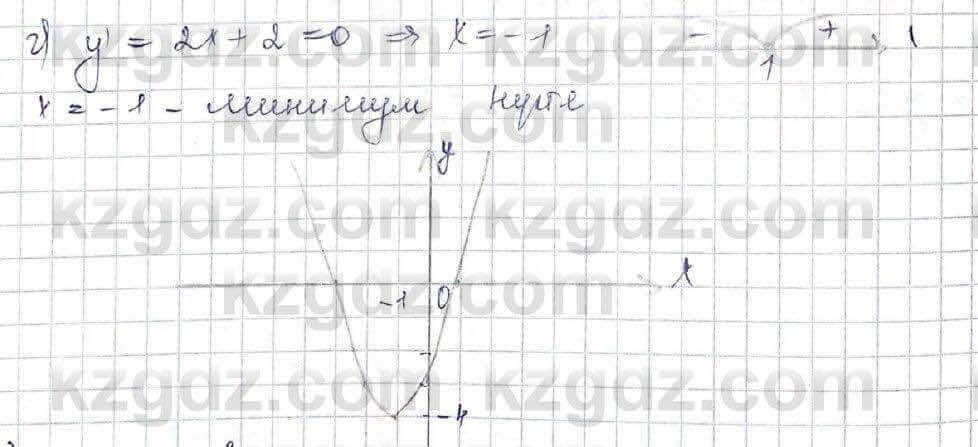 г) y' = 2x + 2 = 0 ⇒ x = -1 - + 1
1
x = -1 - минимум нүкте
y
x
-1 0
-4
kzgdz.com kzgdz.com
kzgdz.com
kzgdz.com kzgdz.com
kzgdz.com
kzgdz.com kzgdz.com